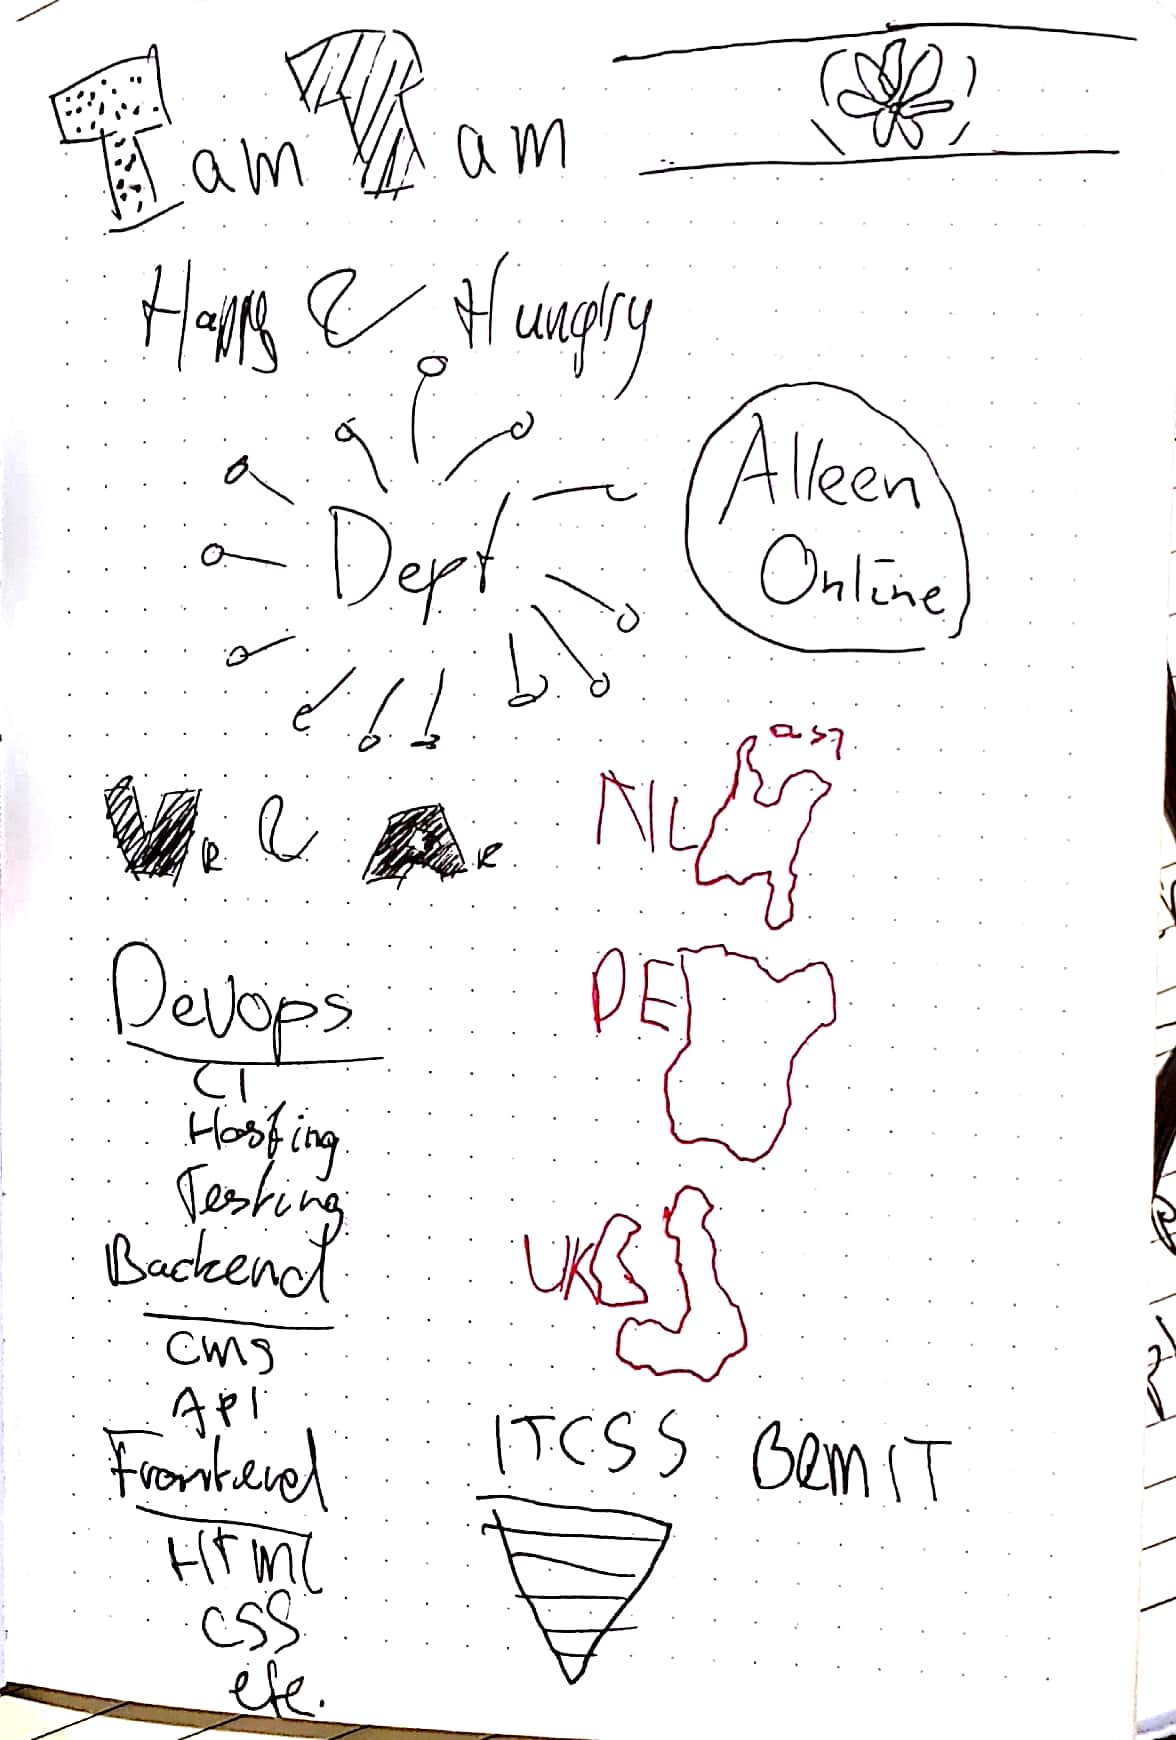 Tam Tam
Happy & Hungry
Dept
Alleen
Online
VR & AR
NL
Devops
CI
Hosting
Testing
DE
Backend
CMS
API
UK
Frontend
HTML
CSS
etc.
ITCSS BEMIT